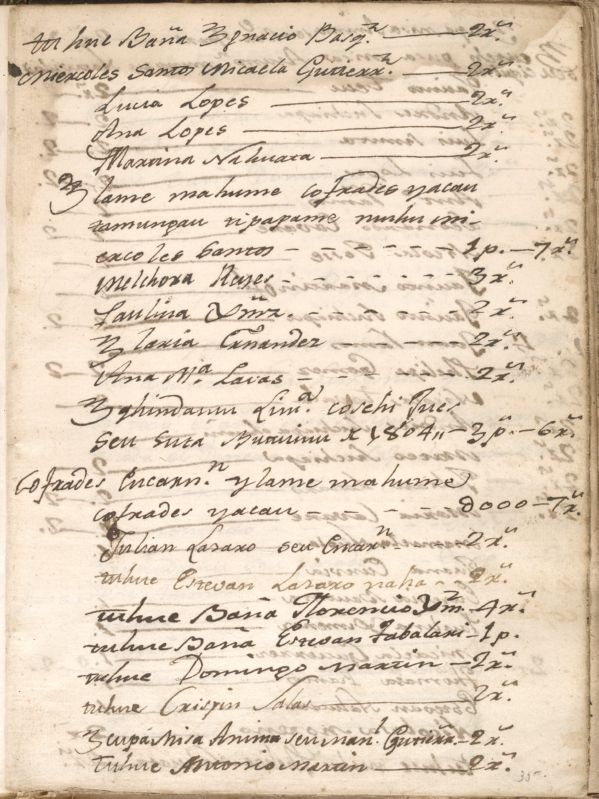 tuhue Baña Ygnacio Basq.z — 2r.s
Miercoles Santos Micaela Gutierr.z — 2r.s
Lucia Lopes — 2r.s
Ana Lopes — 2r.s
Martina Nahuata — 2r.s
Ylame mahume cofrades yacau
tamungau ti papame nuhu mi-
ercoles Santos - - - - - 1p. — 7r.s
Melchora Reyes - - - - - 3r.s
Paulina Xim.z - - - - - 2r.s
Ylaria Ernandez - - - - 2r.s
Ana M.a Lavas - - - - - 2r.s
Lim.a coschi Jues
seu suta 1804,, — 3p.s — 6r.s
Cofrades Encarn.n ylame mahume
cofrades yacau - - - - - d000 — 7r.s
Julian Lazaro seu Encar.n — 2r.s
tuhue Estevan Lazaro naha — 2r.s
tuhue Baña Florencio Xim. — 4r.s
tuhue Baña Estevan Tabalari — 1p.
tuhue Domingo Martin — 2r.s
tuhue Crispin Salas 2r.s
Misa Anima seu man.l Gutierr. — 2r.s
tuhue Antonio Martin — 2r.s
35